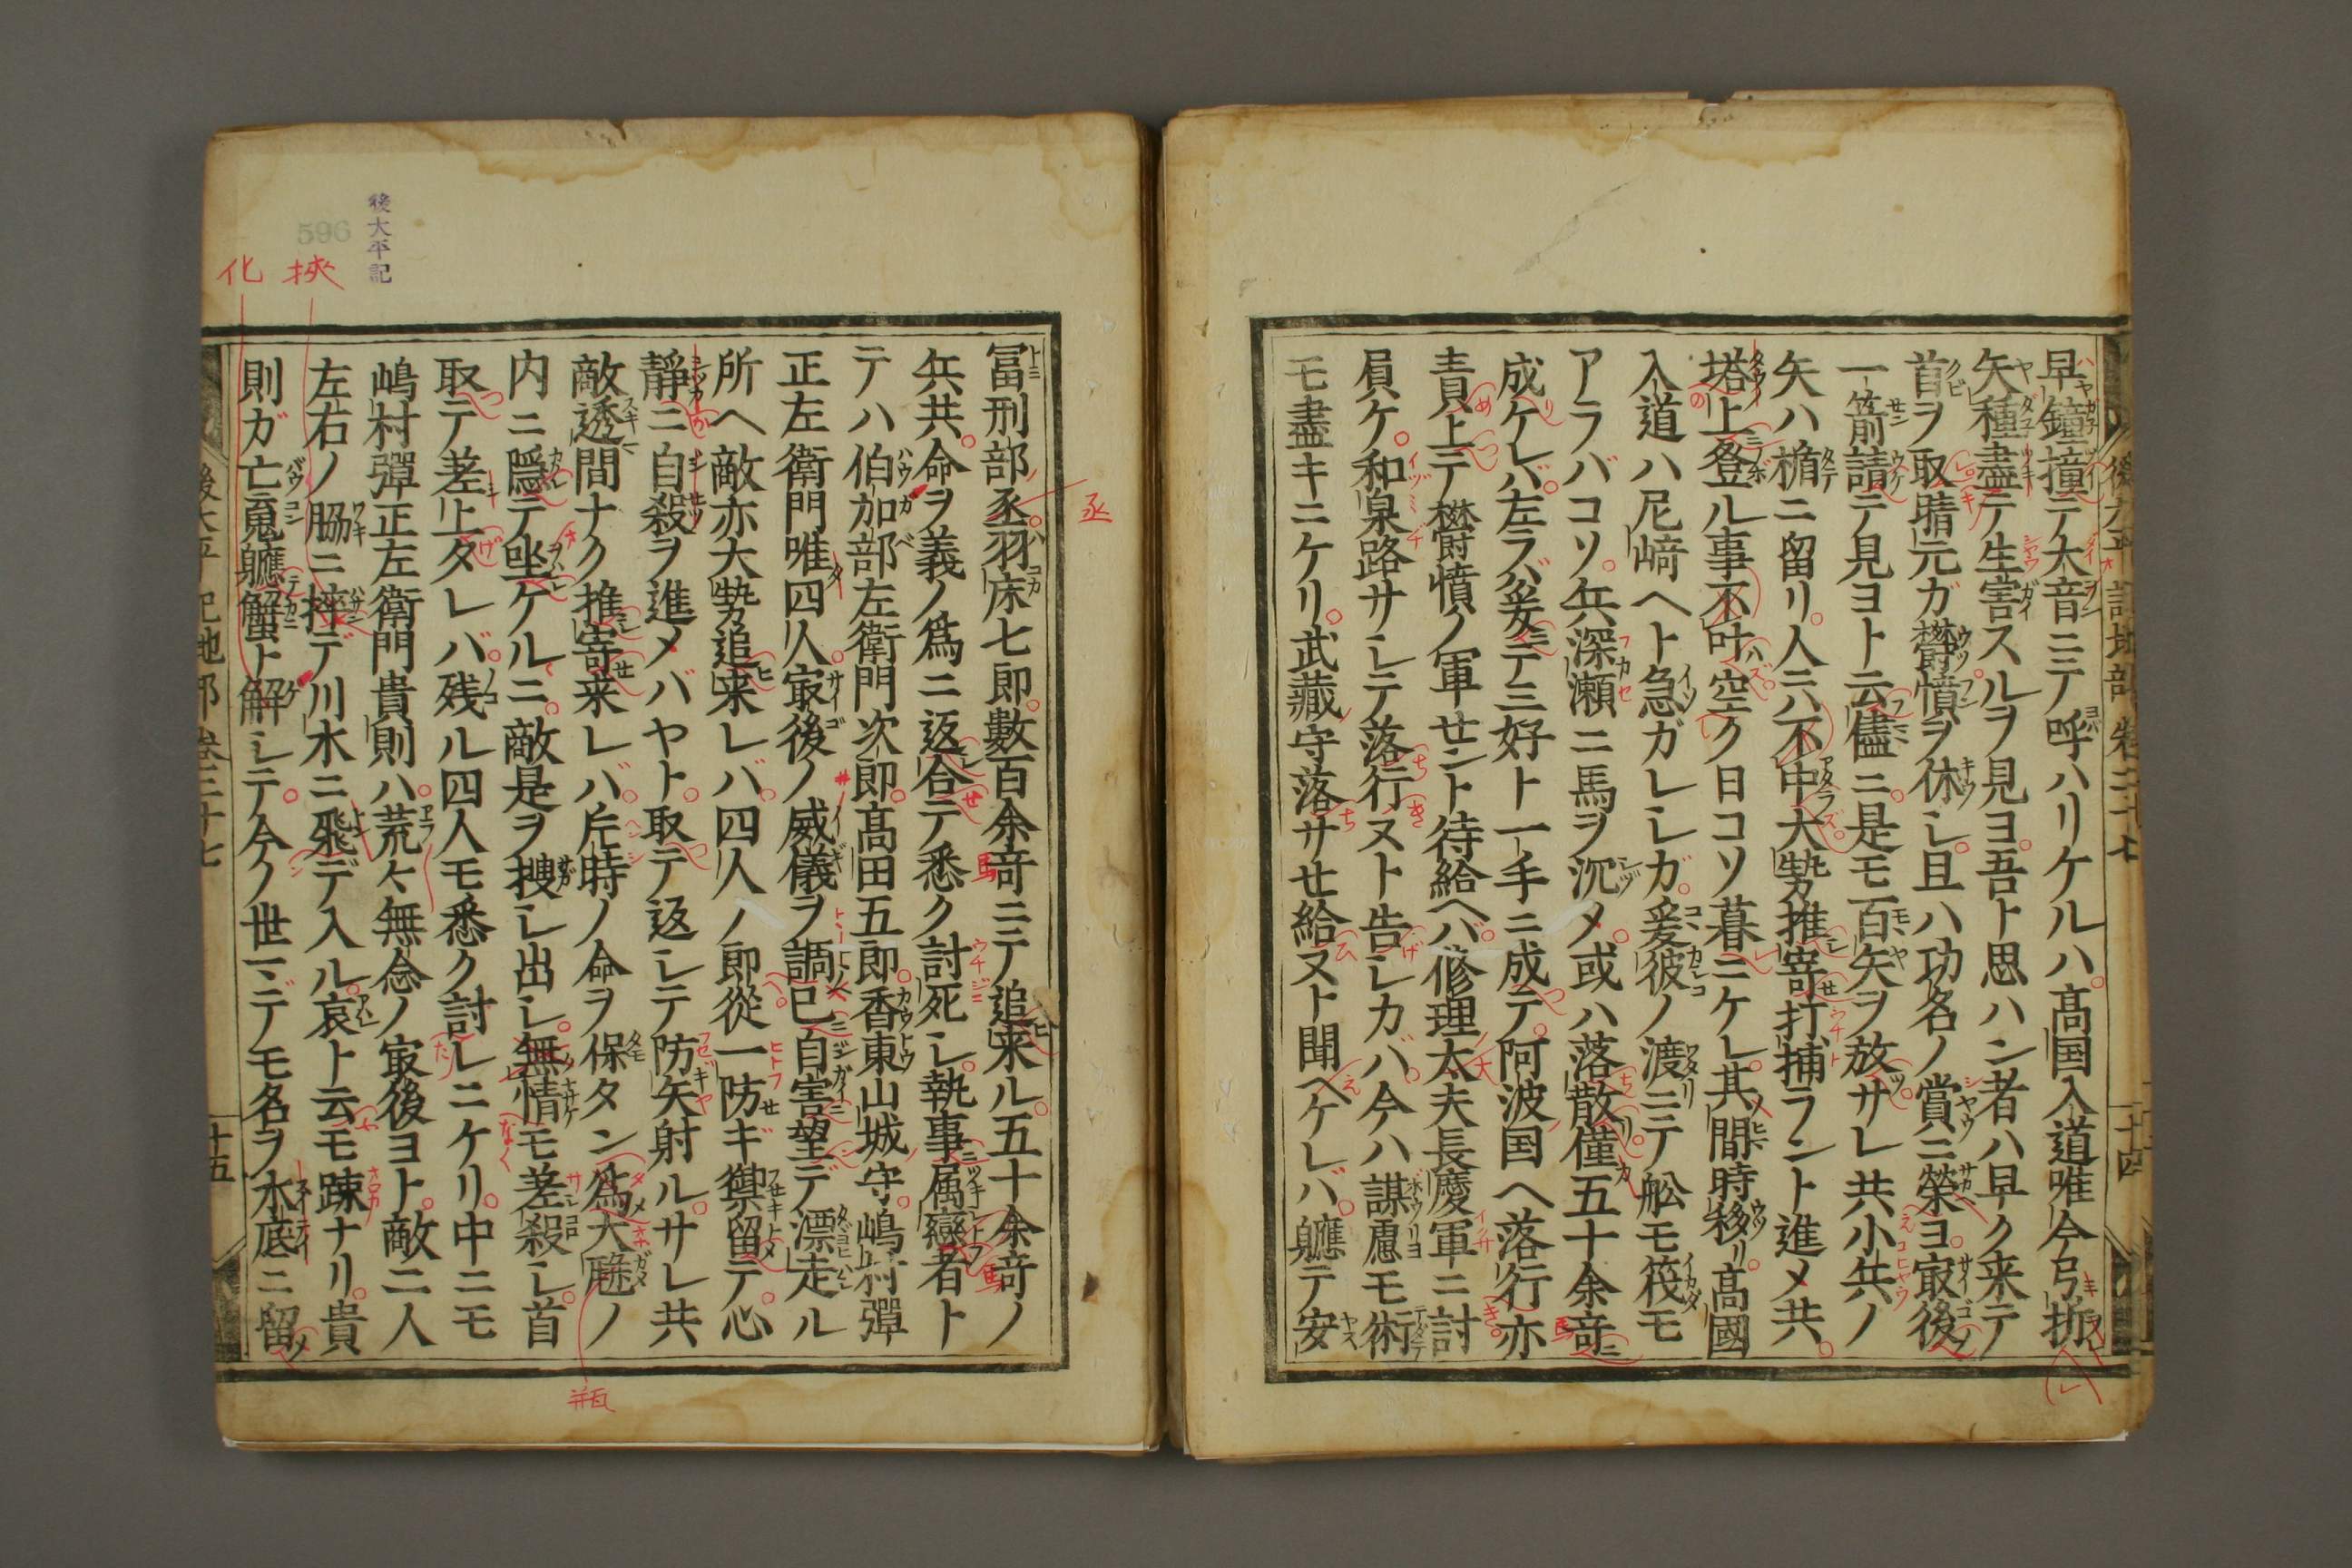 早鐘撞テ大音ニテ呼ハリケルハ高国入道唯今弓折
矢種盡テ生害スルヲ見ヨ吾ト思ハン者ハ早ク来テ
首ヲ取晴元ガ欝憤ヲ休シ且ハ功名ノ賞ニ榮ヨ㝡後
一箭請テ見ヨト云儘ニ是モ百矢ヲ放サレ共小兵ノ
矢ハ楯ニ留リ人ニハ不中大勢推寄打捕フント進メ共
塔上登ル事不叶空ク日コソ暮ニケレ其間時移リ高國
入道ハ尼﨑ヘト急ガレシガ爰彼ノ渡ニテ舩モ筏モ
アラバコソ兵深瀬ニ馬ヲ沉メ或ハ落散僅五十余竒
成ケレバ左ラバ爰ニテ三好ト一手ニ成テ阿波国ヘ落行亦
責上テ欝憤ノ軍セント待給ヘバ修理太夫長慶軍ニ討
負ケ和泉路サシテ落行ヌト告シカバ今ハ謀慮モ術
モ盡キニケリ武藏守落サせ給ヌト聞ヘケレバ軈テ安
後太平記地部 巻二十七
十四
冨刑部丞羽床七郎數百余竒ニテ追来ル五十余竒ノ
兵共命ヲ義ノ爲ニ返合テ悉ク討死シ執事属從者ト
テハ伯加部左衛門次郎髙田五郎香東山城守嶋村彈
正左衛門唯四人㝡後ノ威儀ヲ調已自害望デ漂走ル
所ヘ敵亦大勢追来レバ四人ノ郎從一防ギ禦留テ心
靜ニ自殺ヲ進メバヤト取テ返シテ防矢射ルサレ共
敵透間ナク推寄来レバ片時ノ命ヲ保タン爲大瓼ノ
内ニ隠テ坐ケルニ敵是ヲ捜シ出シ無情モ差殺シ首
取テ差上タレバ残ル四人モ悉ク討レニケリ中ニモ
嶋村彈正左衛門貴則ハ荒々無念ノ㝡後ヨト敵二人
左右ノ脇ニ捽デ川水ニ飛デ入ル哀ト云モ踈ナリ貴
則ガ亡䰟軈蟹ト解シテ今ノ世ニテモ名ヲ水底ニ留
後太平記地部 巻二十七
十五
後太平記
596
挾
化
丞
瓶